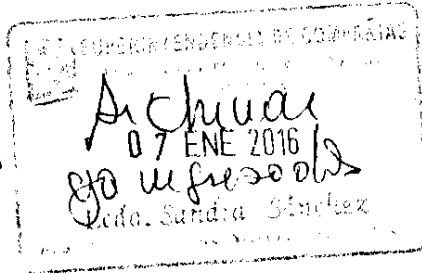 SUPERINTENDENCIA DE COMPAÑIAS
Archivar
07 ENE 2016
ya ingresado
Lcda. Sandra Sánchez